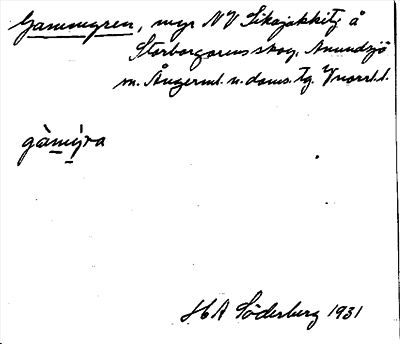 Gammyren, myr NV Sikajakkitj å
Storborgarens skog, Anundsjö
m. Ångerml. n. doms. tg. Vnorrl. l.
gàmýra
HA Söderberg 1931